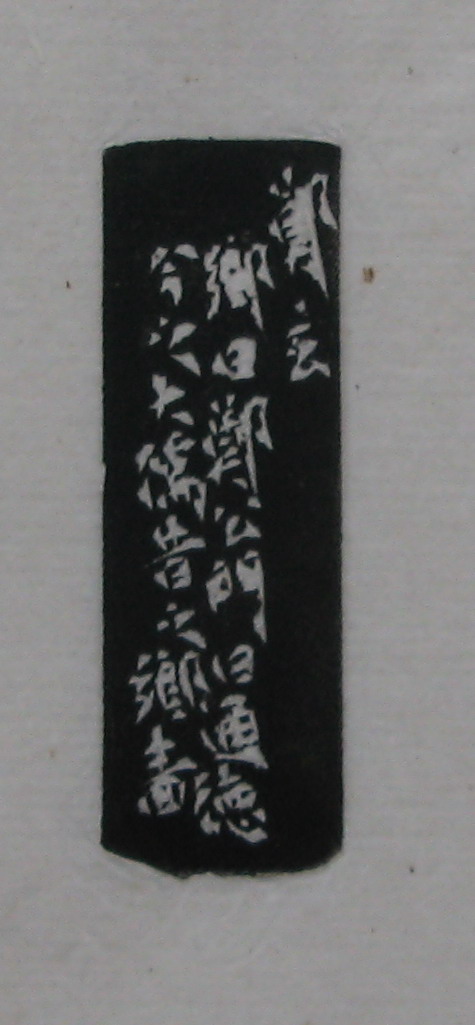 鄭玄
鄉曰鄭公門曰通德
今之大儒昔之鄉